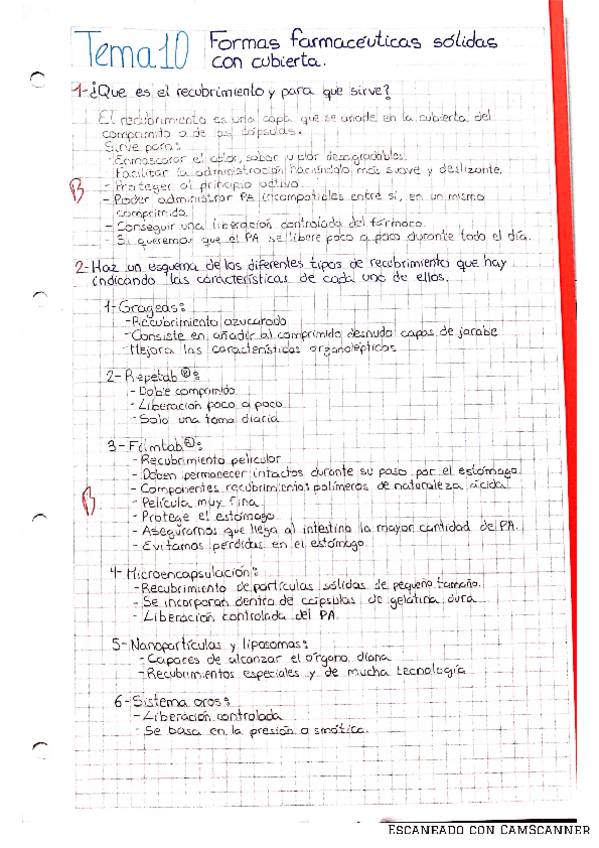 Tema 10 Formas farmacéuticas sólidas
con cubierta.
1-¿Que es el recubrimiento y para que sirve?
El recubrimiento es una capa que se añade en la cubierta del
comprimido o de las cápsulas.
Sirve para:
- Enmascarar el olor, sabor y olor desagradables.
- Facilitar la administración haciéndola más suave y deslizante.
B
- Proteger al principio activo.
- Poder administrar PA incompatibles entre sí, en un mismo
comprimido.
- Conseguir una liberación controlada del fármaco.
- Si queremos que el PA se libere poco a poco durante todo el día.
2-Haz un esquema de los diferentes tipos de recubrimiento que hay
indicando las características de cada uno de ellos.
1-Grageas:
-Recubrimiento azucarado
-Consiste en añadir al comprimido desnudo capas de jarabe
-Mejora las características organolépticas
2-Repetab®:
- Doble comprimido
- Liberación poco a poco
- Solo una toma diaria
3-Filmtab®:
- Recubrimiento pelicular
- Deben permanecer intactos durante su paso por el estómago.
- Componentes recubrimiento: polímeros de naturaleza ácida
B
- Película muy fina
- Protege el estómago
- Aseguramos que llega al intestino la mayor cantidad del PA.
- Evitamos perdidas en el estómago.
4-Microencapsulación:
- Recubrimiento de partículas sólidas de pequeño tamaño.
- Se incorporan dentro de cápsulas de gelatina dura
- Liberación controlada del PA.
5-Nanopartículas y liposomas:
- Capaces de alcanzar el órgano diana
-Recubrimientos especiales y de mucha tecnología
6-Sistema oros:
-Liberación controlada
- Se basa en la presión osmótica.
Escaneado con CamScanner